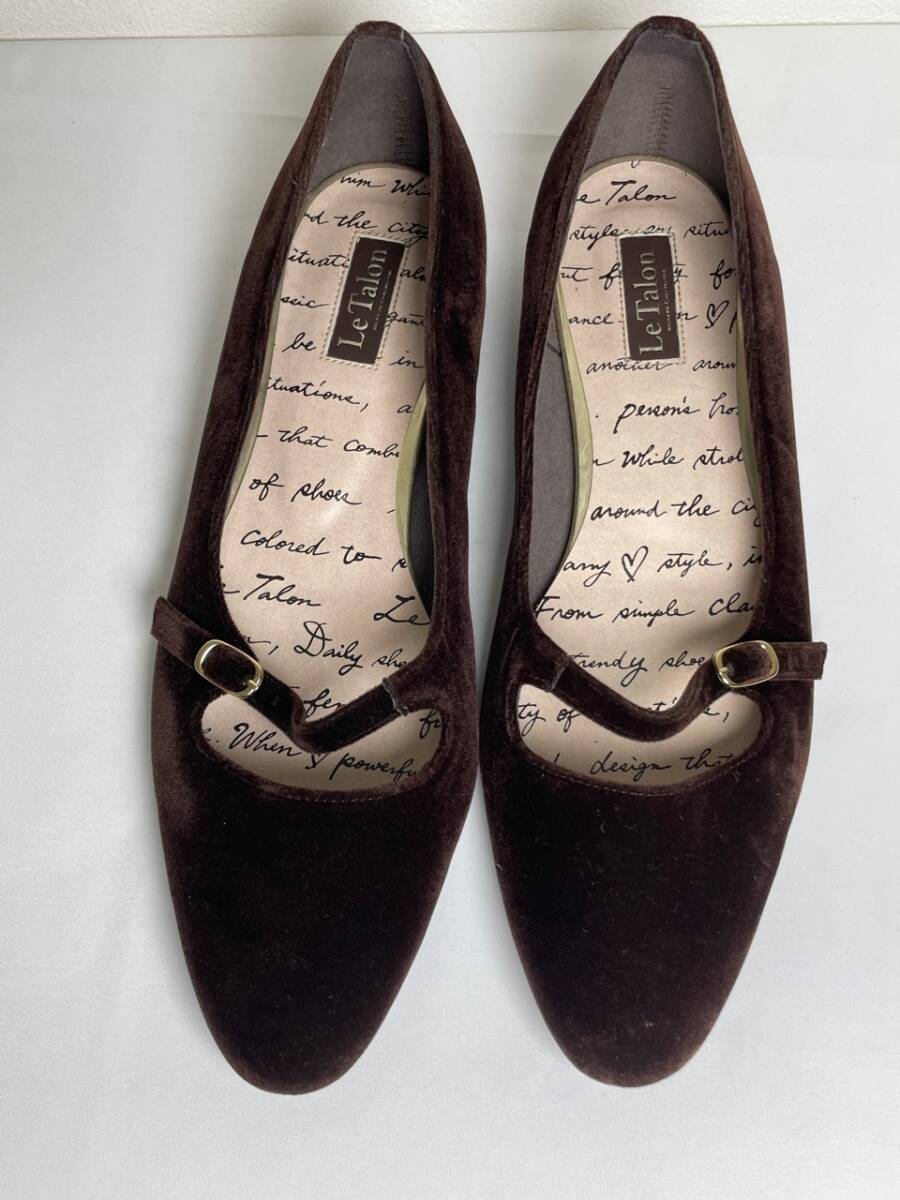 him Whi
d the city
ituati al
ssic gan
be in
tuations, a
- that comb
of shoes ,
colored to s
Talon Le
, Daily sho
fe fu
. When ♡ powerfu
Le Talon
e Talon
style any situ
ut f y fo
ance n ♡
another aroun
. person's fro
n While strol
around the ci
any ♡ style, in
From simple cla
trendy shoe
ty of ti e,
design that
Le Talon